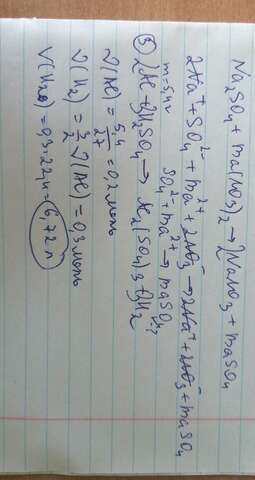 Na₂SO₄ + ma(NO₃)₂ → 2NaNO₃ + maSO₄
2Na⁺ + SO₄²⁻ + ma²⁺ + 2NO₃⁻ → 2Na⁺ + 2NO₃⁻ + maSO₄
SO₄²⁻ + ma²⁺ → maSO₄
m=5,4г V-?
③ 2Al + 3H₂SO₄ → Al₂(SO₄)₃ + 3H₂
ν(Al) = 5,4/27 = 0,2 моль
ν(H₂) = 3/2 ν(Al) = 0,3 моль
V(H₂) = 0,3·22,4 = 6,72 л